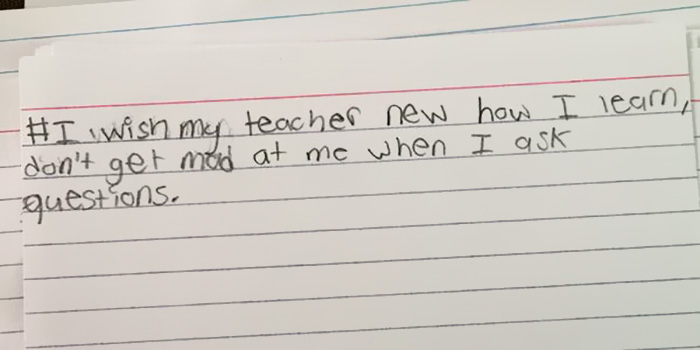 #I wish my teacher new how I learn,
don't get mad at me when I ask
questions.